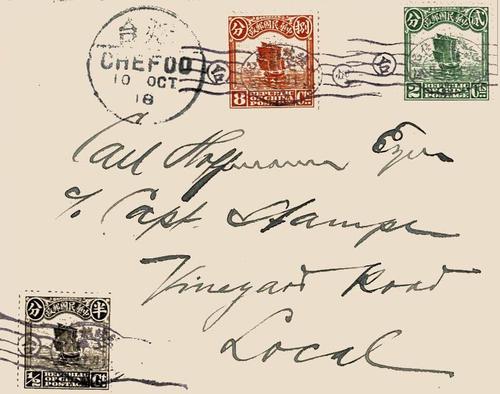 CHEFOO
10 OCT
18
中華民國郵政
分 捌
8 REPUBLIC OF CHINA POSTAGE Cts
中華民國郵政
分 貳
2 REPUBLIC OF CHINA POSTAGE Cts
Carl Hoffmann Esqr
c/o Capt. Stampe
Vineyard Road
Local
中華民國郵政
分 半
1/2 REPUBLIC OF CHINA POSTAGE Ct